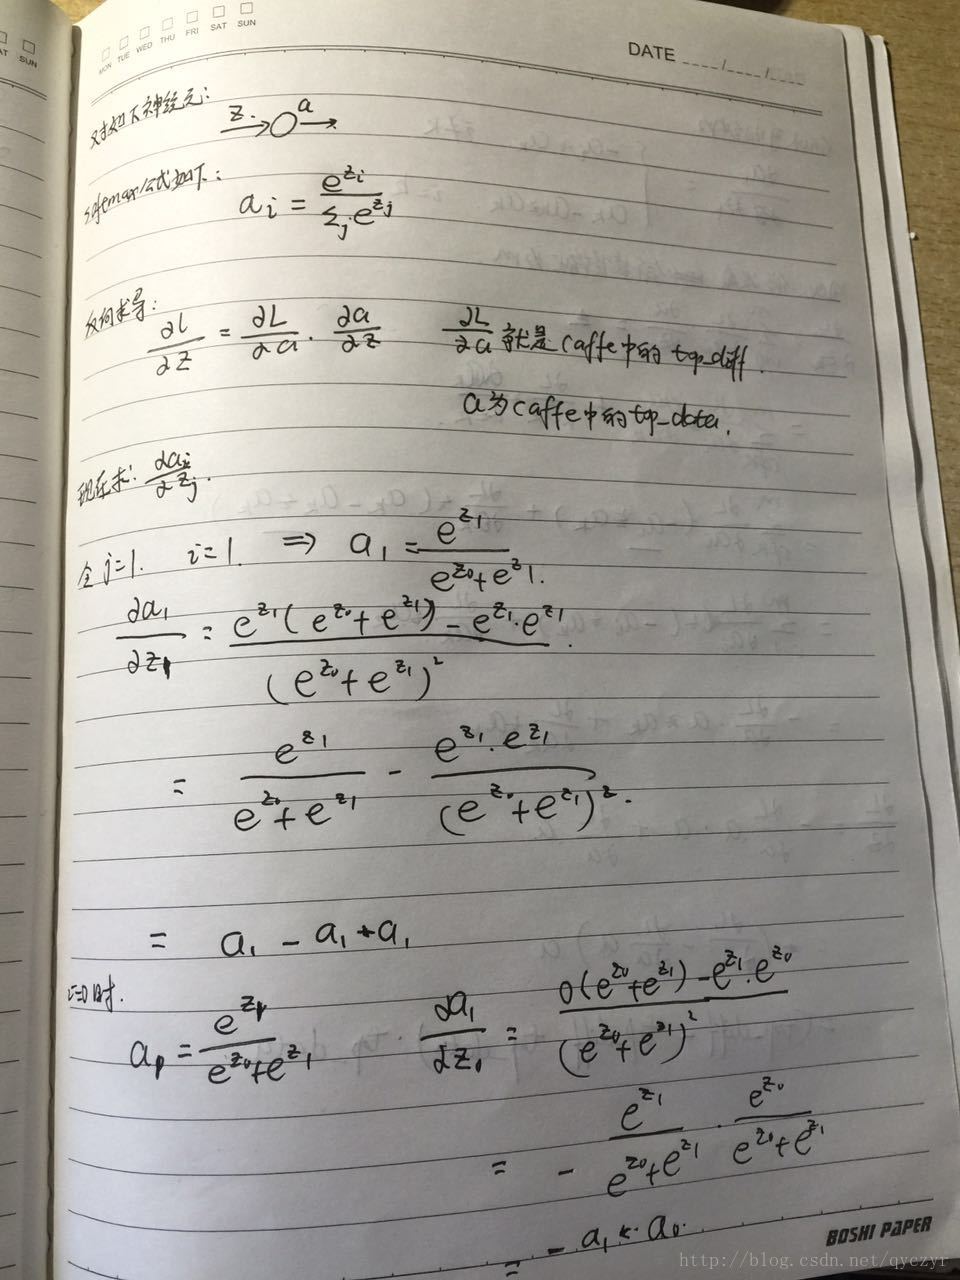 MON TUE WED THU FRI SAT SUN
SUN
DATE ____/____/____
对如下神经元:
z. → ○ a →
softmax公式如下:
a_i = e^{z_i} / Σ_j e^{z_j}
反向求导:
∂l/∂z = ∂L/∂a · ∂a/∂z
∂L/∂a 就是caffe中的top_diff.
a为caffe中的top_data.
现在求: ∂a_i/∂z_j.
令j=1. i=1. ⇒ a_1 = e^{z_1} / (e^{z_0}+e^{z_1}).
∂a_1/∂z_1 = (e^{z_1}(e^{z_0}+e^{z_1}) - e^{z_1}·e^{z_1}) / (e^{z_0}+e^{z_1})^2.
= e^{z_1} / (e^{z_0}+e^{z_1}) - e^{z_1}·e^{z_1} / (e^{z_0}+e^{z_1})^2.
= a_1 - a_1 * a_1
i=0时.
a_1 = e^{z_1} / (e^{z_0}+e^{z_1}) . ∂a_1/∂z_0 = (0(e^{z_0}+e^{z_1}) - e^{z_1}·e^{z_0}) / (e^{z_0}+e^{z_1})^2
= - e^{z_1} / (e^{z_0}+e^{z_1}) · e^{z_0} / (e^{z_0}+e^{z_1})
= -a_1 * a_0.
BOSHI PAPER
http://blog.csdn.net/qyczyr